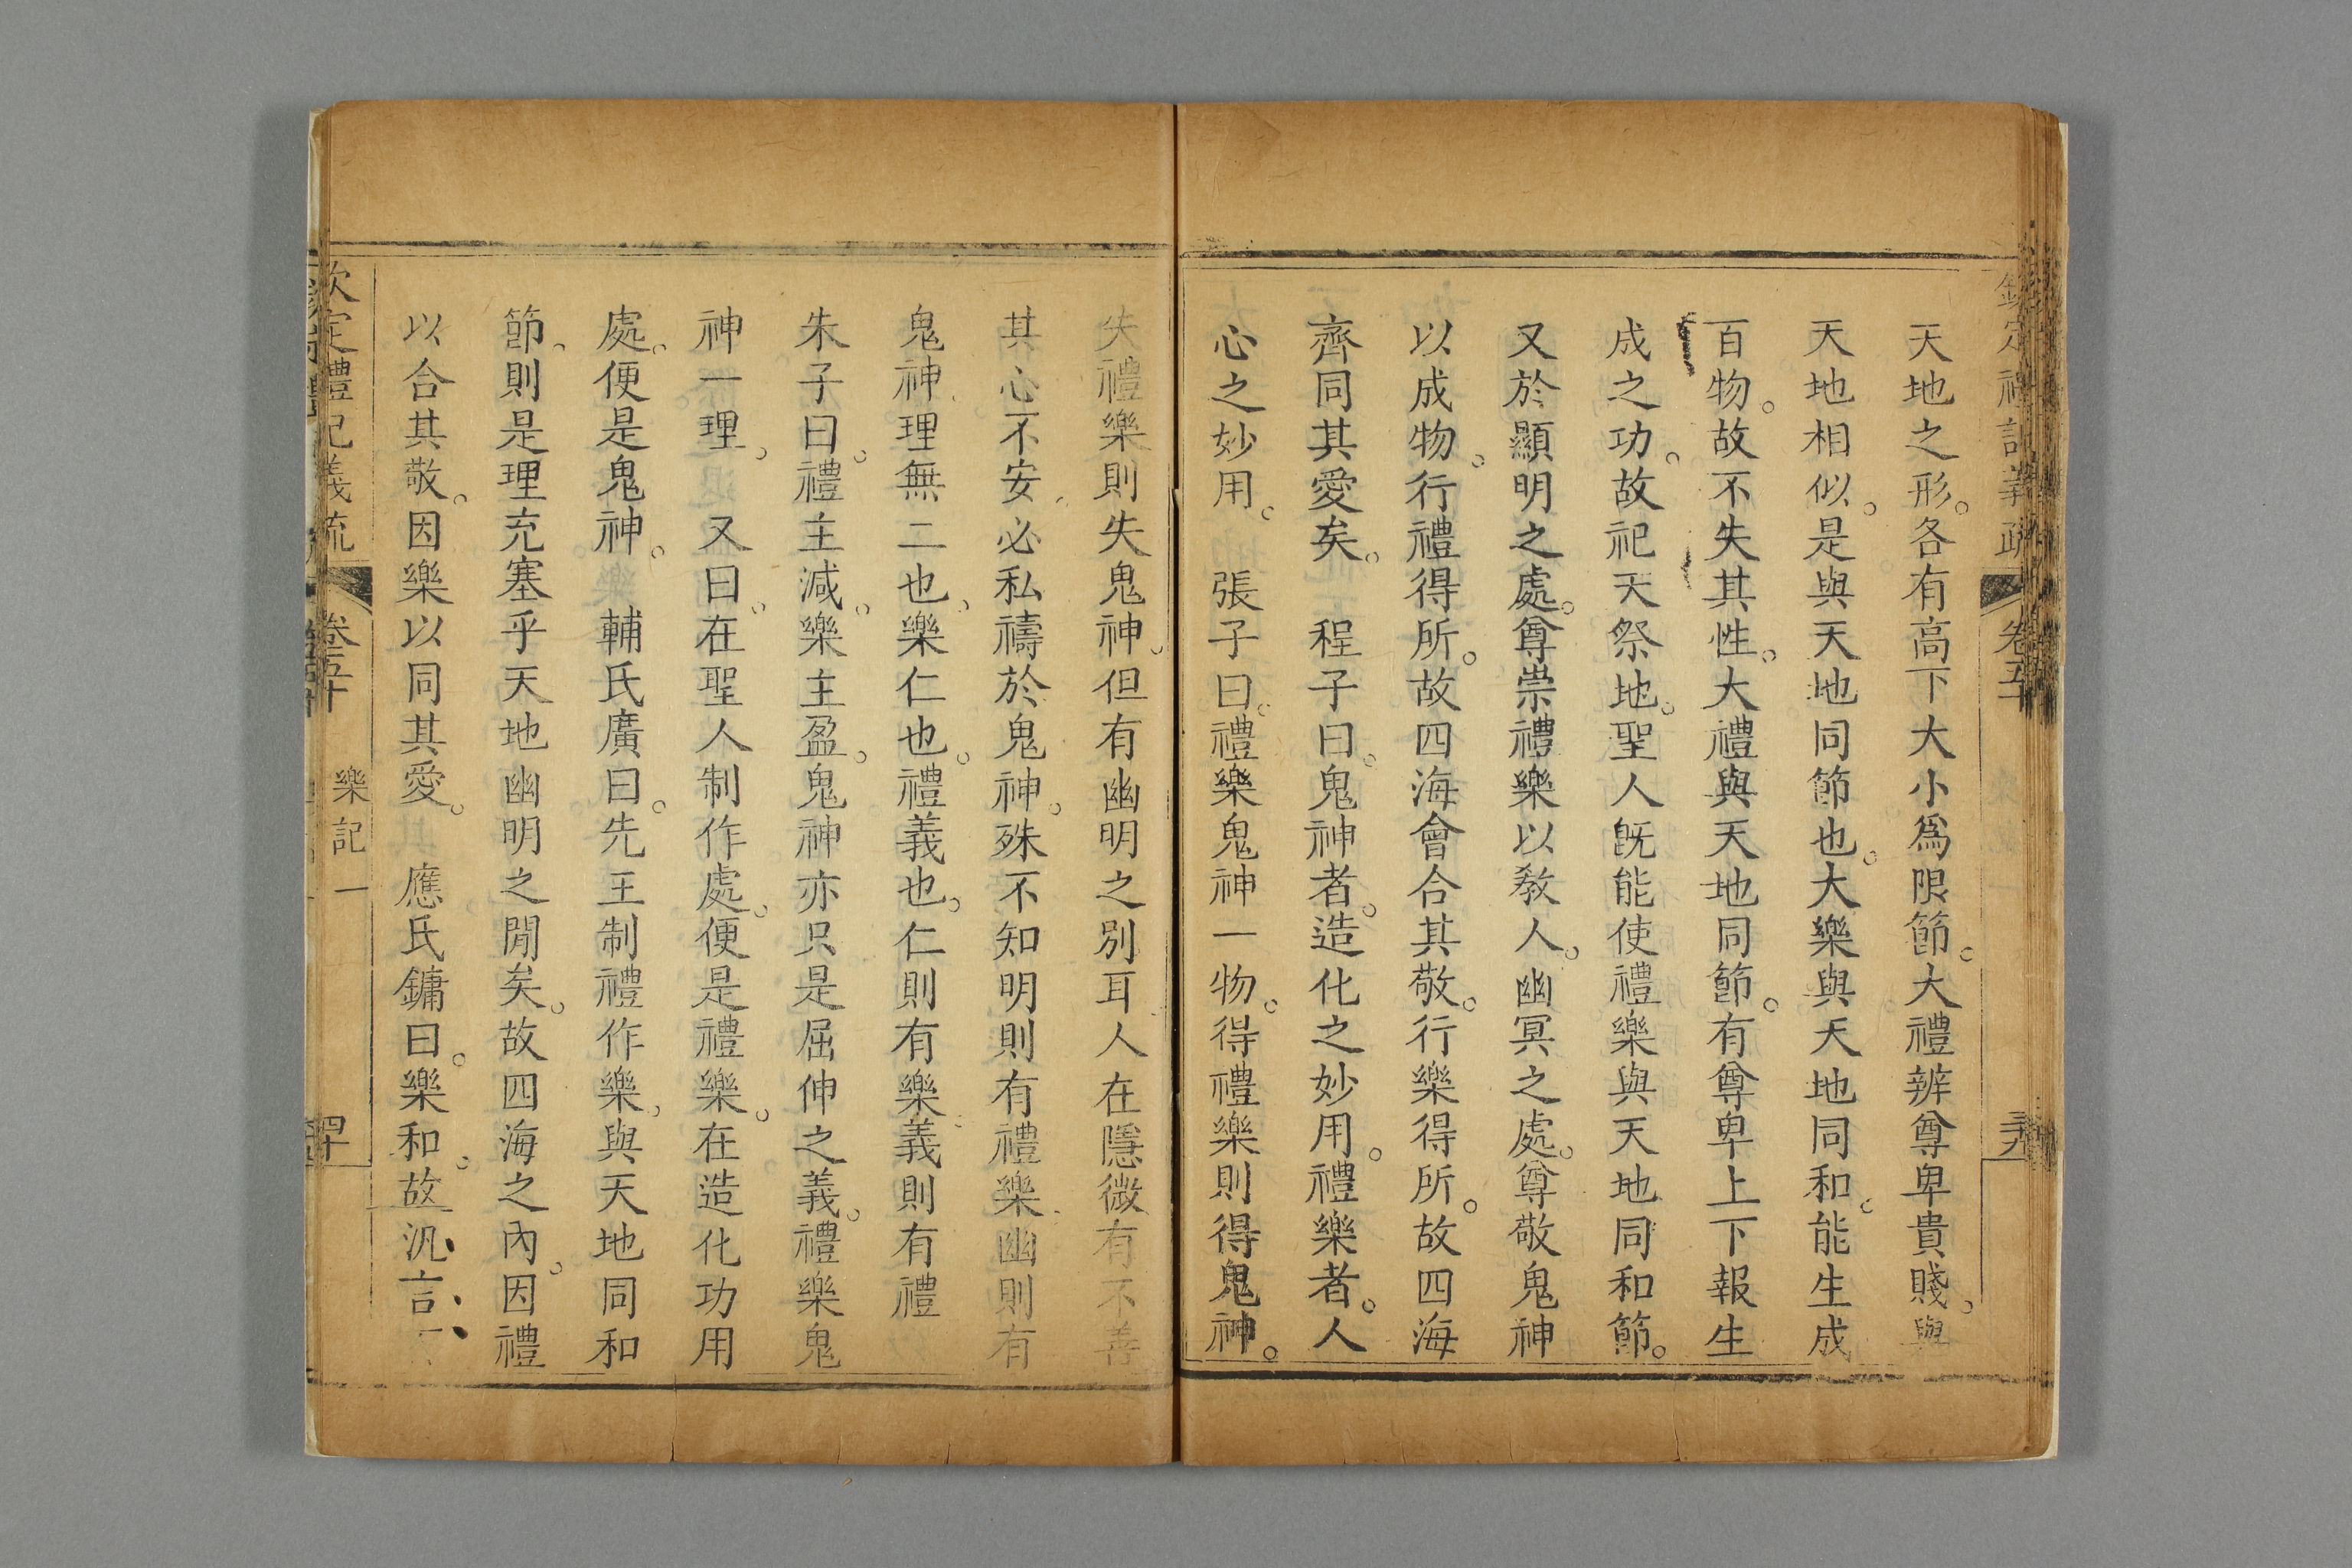 欽定禮記義疏 卷五十 樂記一 三十九
天地之形。各有高下大小爲限節。大禮辨尊卑貴賤。與
天地相似。是與天地同節也。大樂與天地同和。能生成
百物。故不失其性。大禮與天地同節。有尊卑上下報生
成之功。故祀天祭地。聖人旣能使禮樂與天地同和節。
又於顯明之處。尊崇禮樂以敎人。幽冥之處。尊敬鬼神
以成物。行禮得所。故四海會合其敬。行樂得所。故四海
齊同其愛矣。 程子曰。鬼神者。造化之妙用。禮樂者。人
心之妙用。 張子曰。禮樂鬼神一物。得禮樂則得鬼神。
失禮樂則失鬼神。但有幽明之別耳人在隱微有不善
其心不安。必私禱於鬼神。殊不知明則有禮樂。幽則有
鬼神。理無二也。樂仁也。禮義也。仁則有樂。義則有禮
朱子曰。禮主減。樂主盈。鬼神亦只是屈伸之義。禮樂鬼
神一理。 又曰。在聖人制作處。便是禮樂。在造化功用
處。便是鬼神。 輔氏廣曰。先王制禮作樂。與天地同和
節。則是理充塞乎天地幽明之閒矣。故四海之內。因禮
以合其敬。因樂以同其愛。 應氏鏞曰。樂和。故汎言
欽定禮記義疏 卷五十 樂記一 四十